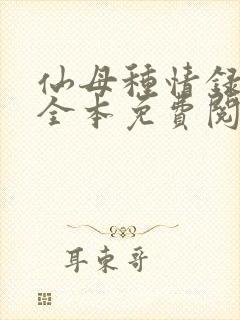 仙母種情録
全本免費閱
耳東哥